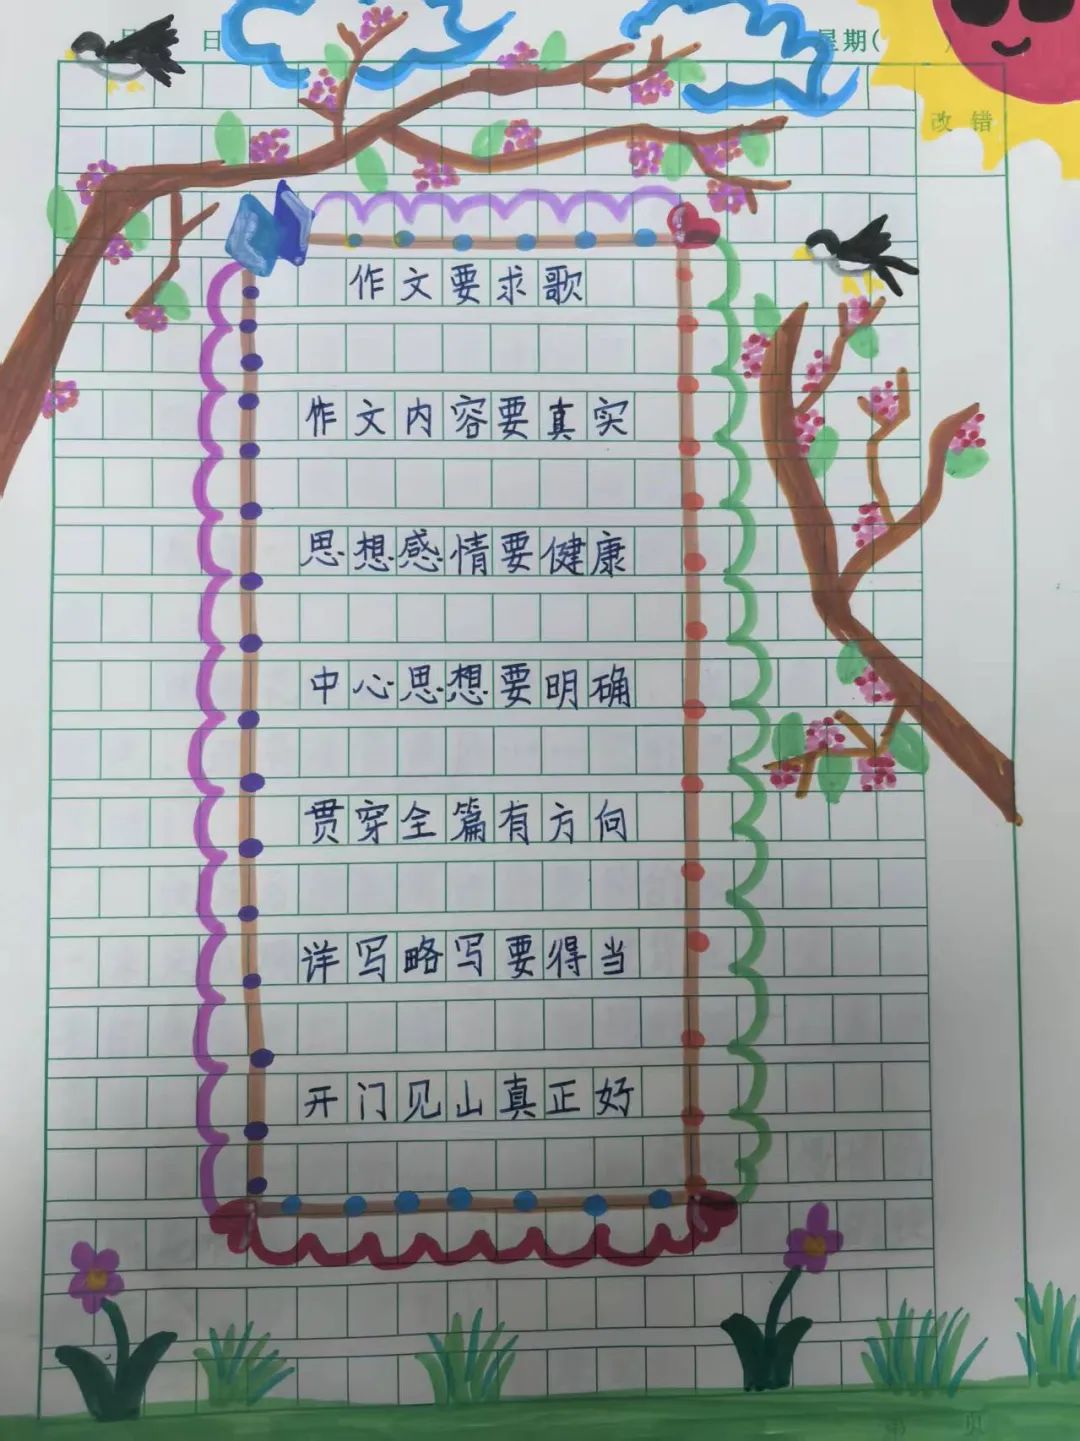 日 星期( )
改错
作文要求歌
作文内容要真实
思想感情要健康
中心思想要明确
贯穿全篇有方向
详写略写要得当
开门见山真正好
第 页